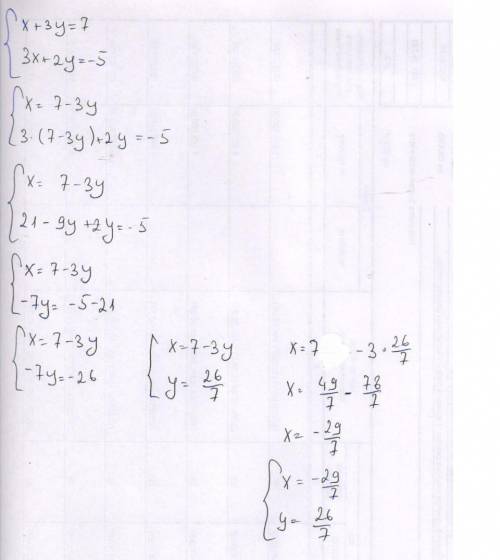 x+3y=7
3x+2y=-5
x= 7-3y
3·(7-3y)+2y=-5
x= 7-3y
21-9y+2y=-5
x=7-3y
-7y= -5-21
x=7-3y
-7y=-26
x=7-3y
y= 26/7
x=7 -3·26/7
x= 49/7 - 78/7
x= -29/7
x= -29/7
y= 26/7